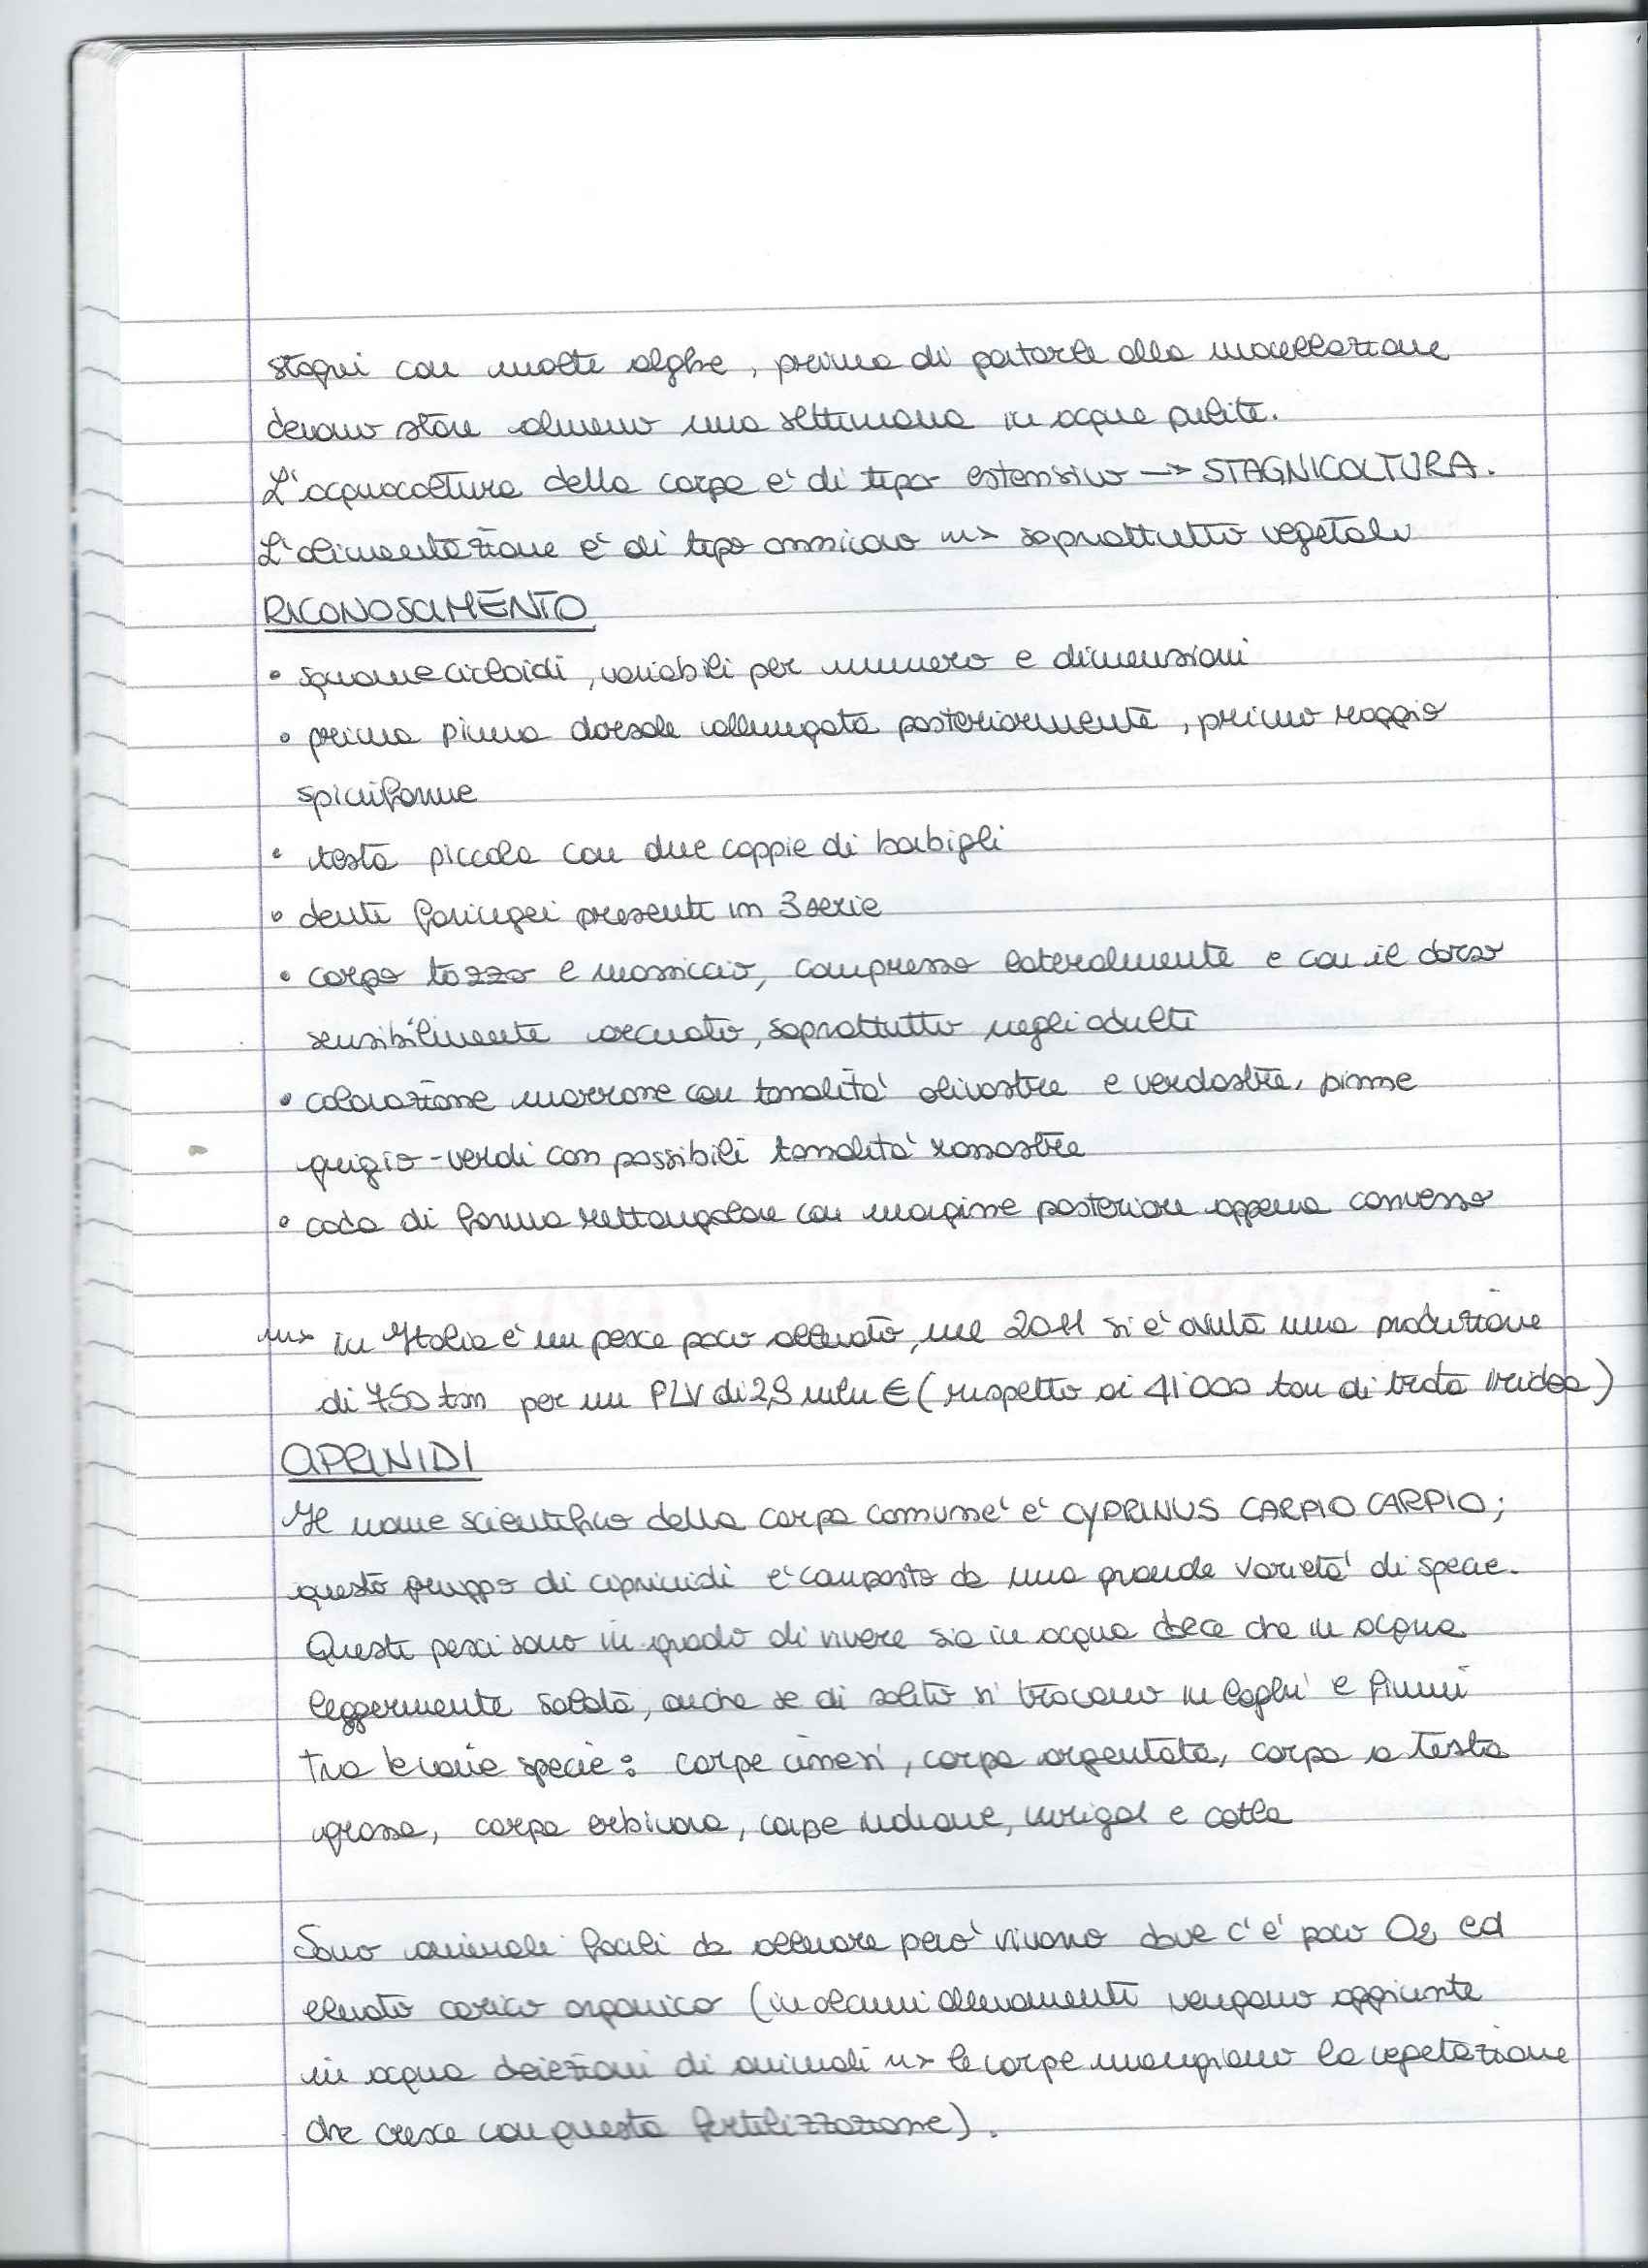 stagni con molte alghe, prima di portarle alla macellazione
devono stare almeno una settimana in acque pulite.
L'acquacoltura della carpa è di tipo estensivo → STAGNICOLTURA.
L'alimentazione è di tipo onnivoro → soprattutto vegetale
RICONOSCIMENTO
• squame cicloidi, variabili per numero e dimensioni
• prima pinna dorsale allungata posteriormente, primo raggio
spiniforme
• testa piccola con due coppie di barbigli
• denti faringei presenti in 3 serie
• corpo tozzo e massiccio, compresso lateralmente e con il dorso
sensibilmente arcuato, soprattutto negli adulti
• colorazione marrone con tonalità olivastre e verdastre, pinne
grigio-verdi con possibili tonalità rossastre
• coda di forma rettangolare con margine posteriore appena connesso
→ in Italia è un pesce poco allevato, nel 2011 si è avuta una produzione
di 750 ton per un PLV di 2,9 mln € (rispetto ai 41'000 ton di trota iridea)
CIPRINIDI
Il nome scientifico della carpa comune è CYPRINUS CARPIO CARPIO;
questo gruppo di ciprinidi è composto da una grande varietà di specie.
Questi pesci sono in grado di vivere sia in acqua dolce che in acqua
leggermente salata, anche se di solito si trovano in laghi e fiumi
Tra le varie specie: carpe cinesi, carpa argentata, carpa a testa
grossa, carpa erbivora, carpe indiane, mrigal e catla
Sono animali facili da allevare però vivono dove c'è poco O2 ed
elevato carico organico (in alcuni allevamenti vengono aggiunte
in acqua deiezioni di animali → le carpe mangiano la vegetazione
che cresce con questa fertilizzazione).